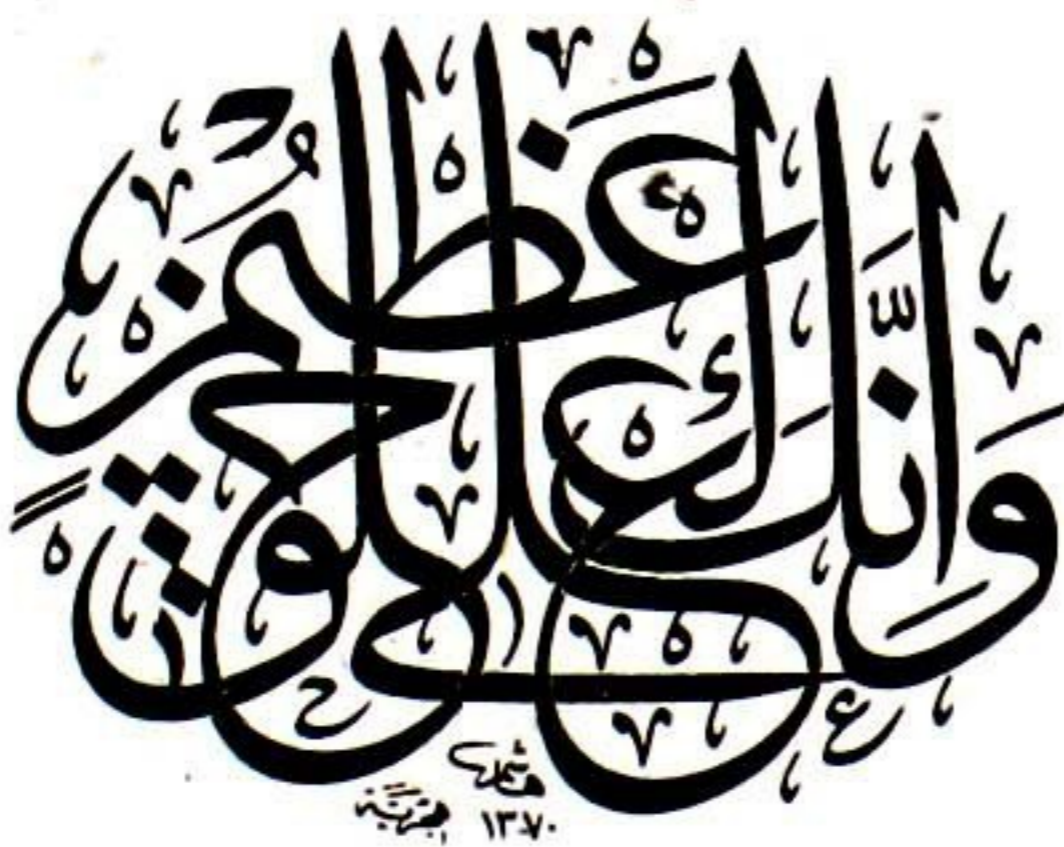 وَإِنَّكَ لَعَلىٰ خُلُقٍ عَظِيمٍ
هاشم
١٣٧٠